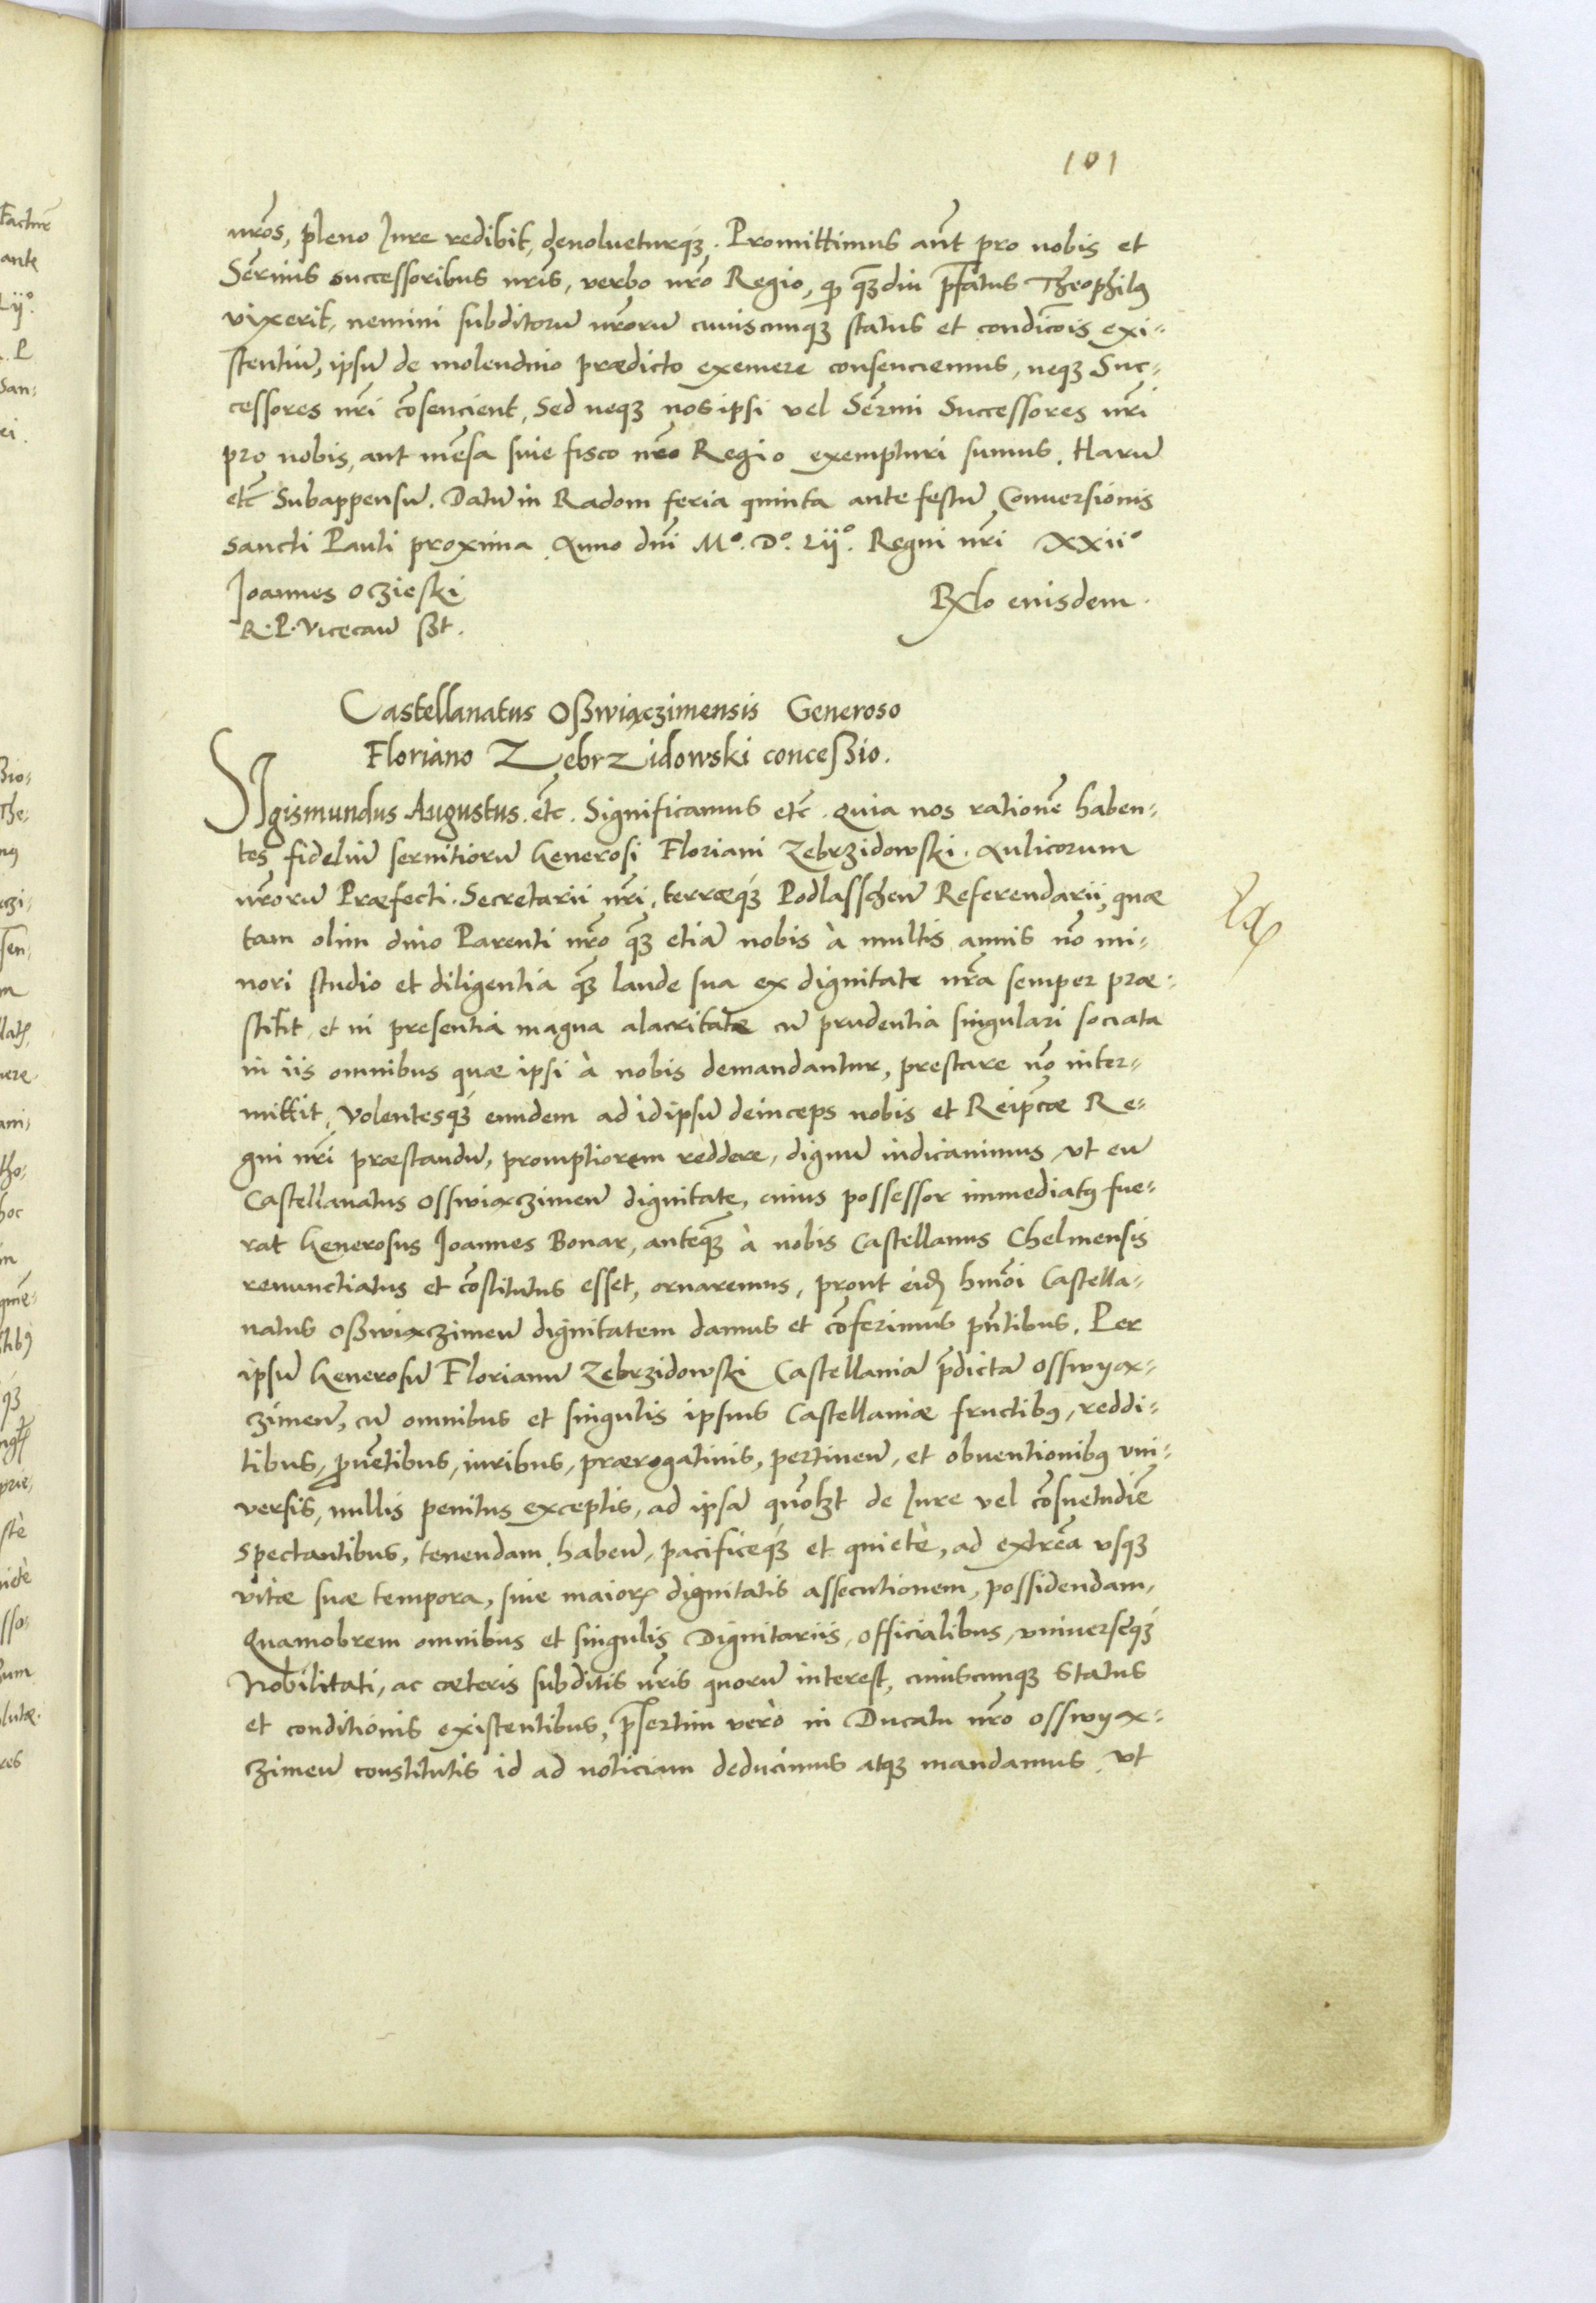 101
nros, pleno Iure redibit, devolueturq́3. Promittimus aut̃ pro nobis et
Serm̃is successoribus nris, verbo nro Regio, qp q̃3diu p̃fatus Theophilꝰ
vixerit, nemini subditoru̅ nroru̅ cuiuscunq3 status et condic̃ois exi-
stentiu̅, ipsu̅ de molendino prædicto exemere consenciemus, neq3 Suc-
cessores nri co̅sencient, Sed neq3 nos ipsi vel Serm̃i Successores nri
pro nobis, aut me̅sa siue fisco nro Regio exempturi sumus. Haru̅
etc̃ Subappensu̅. Datu̅ in Radom feria quinta ante festu̅ Conuersionis
sancti Pauli proxima. Anno dni M°. D°. Lii°. Regni nri XXii°
Joannes Oczieski
R. P. Vicecan̅ sßt.
Rẽlo eiusdem.
Castellanatus Oßwiączimensis Generoso
Floriano Zebrzidowski conceßio.
SIgismundus Augustus. etc̃. Significamus etc̃. Quia nos ratione̅ haben-
tes fideliu̅ seruitioru̅ Generosi Floriani Zebrzidowski. Aulicorum
nroru̅ Præfecti. Secretarii nri, terræq́3 Podlasschen̅ Referendarii, quæ
tam olim diuo Parenti nro q̃3 etia̅ nobis à multis annis no̅ mi-
nori studio et diligentia q̃3 laude sua ex dignitate nra semper præ-
stitit, et in presentia magna alacritate cu̅ prudentia singulari sociata
in iis omnibus quæ ipsi à nobis demandantur, prestare no̅ inter-
mittit, Volentesq́3 eundem ad id ipsu̅ deinceps nobis et Reipc̃æ Re-
gni nri præstandu̅, promptiorem reddere, dignu̅ iudicauimus, vt eu̅
Castellanatus Osswiączimen̅ dignitate, cuius possessor immediatꝰ fue-
rat Generosus Joannes Bonar, anteq̃3 à nobis Castellanus Chelmensis
renunctiatus et co̅stitutus esset, ornaremus, prout eid̃ hm̃oi Castella-
natus Oßwiączimen̅ dignitatem damus et co̅ferimus pñtibus. Per
ipsu̅ Generosu̅ Florianu̅ Zebrzidowski Castellania̅ p̃dicta̅ Osswyą-
czimen̅, cu̅ omnibus et singulis ipsius Castellaniæ fructibꝰ, reddi-
tibus, ꝓuẽtibus, iuribus, prærogatiuis, pertinen̅, et obuentionibꝰ vni-
versis, nullis penitus exceptis, ad ipsa̅ quo̅l3t de Iure vel co̅suetudie̅
spectantibus, tenendam, haben̅, pacificeq́3 et quietè, ad extrẽa vsq3
vitæ suæ tempora, siue maioris dignitatis assecutionem, possidendam,
Quamobrem omnibus et singulis Dignitariis, Officialibus, vniuerseq́3
Nobilitati, ac cæteris subditis nris quoru̅ interest, cuiuscunq3 Status
et conditionis existentibus, p̃sertim verò in Ducatu nro Osswyą-
czimen̅ constitutis id ad noticiam deducimus atq3 mandamus, vt